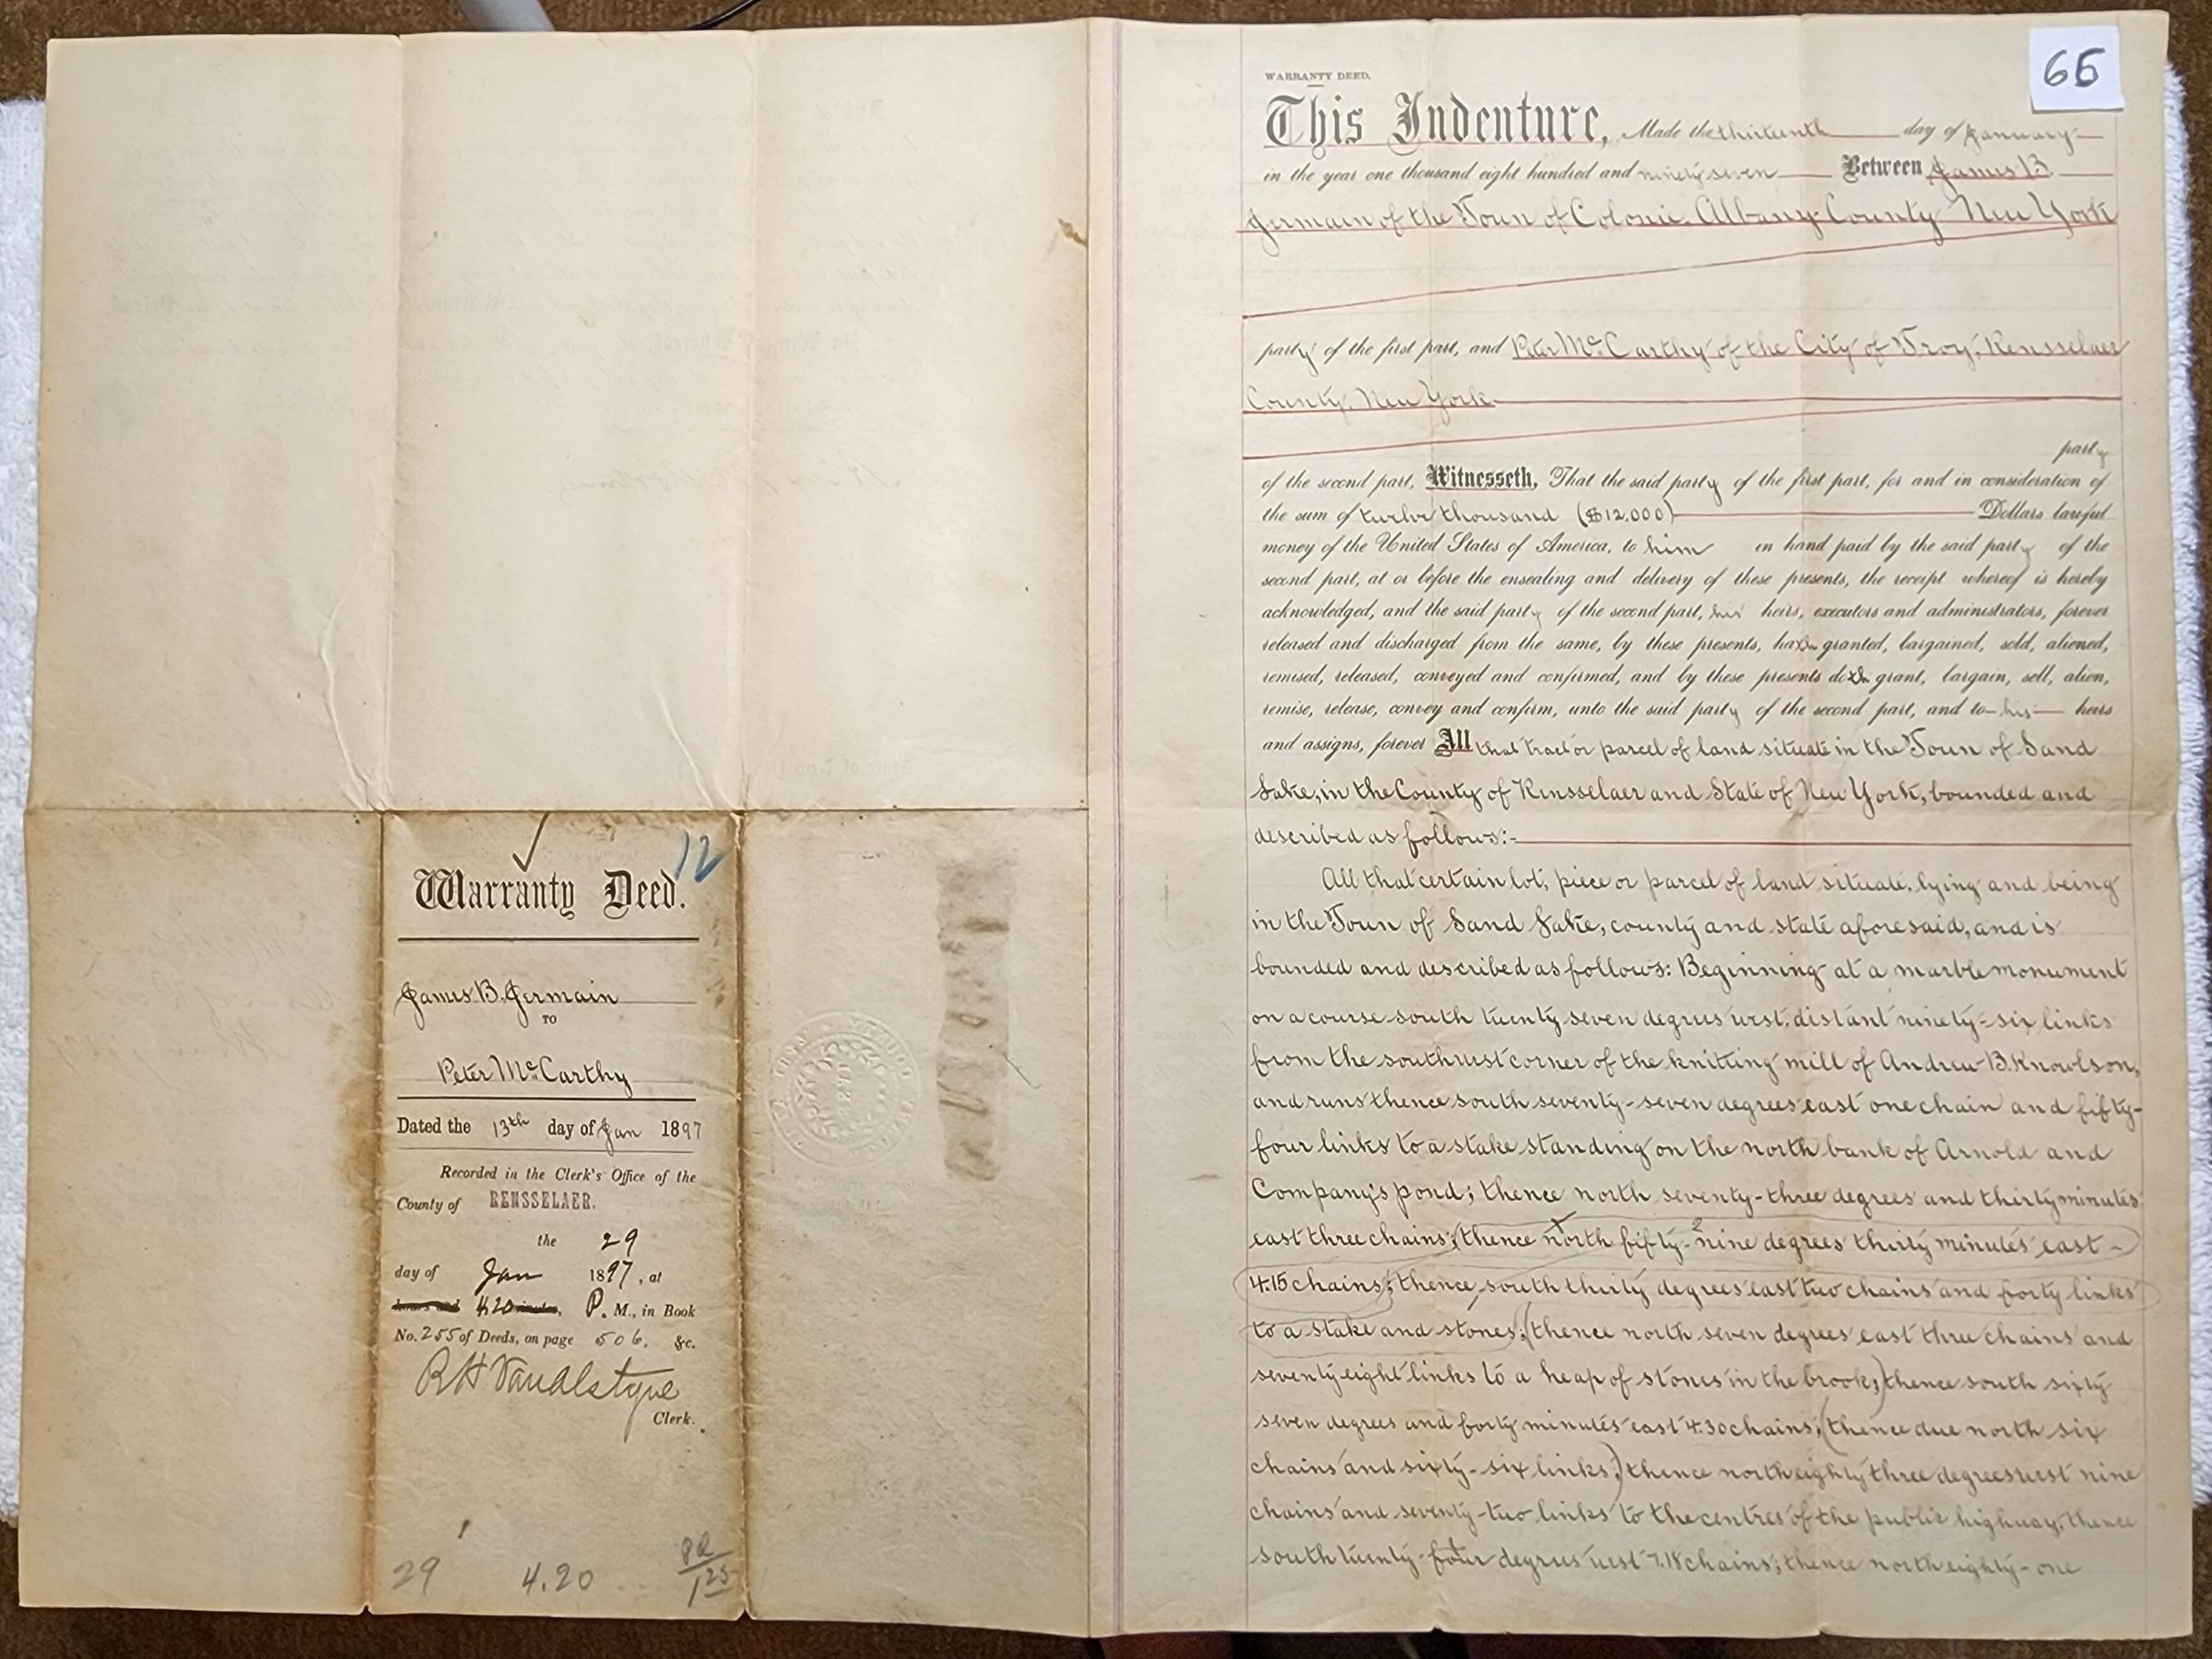 Warranty Deed.
12
James B. Germain
TO
Peter McCarthy
Dated the 13th day of Jan 1897
Recorded in the Clerk's Office of the
County of RENSSELAER.
the 29
day of Jan 1897, at
hours and 4.20 minutes, P. M., in Book
No. 255 of Deeds, on page 506. &c.
R H VanAlstyne
Clerk.
29 4.20 125
65
WARRANTY DEED.
This Indenture, Made the thirteenth day of January
in the year one thousand eight hundred and ninety seven Between James B
Germain of the Town of Colonie Albany County New York
party of the first part, and Peter McCarthy of the City of Troy, Rensselaer
County, New York
party
of the second part, Witnesseth, That the said party of the first part, for and in consideration of
the sum of twelve thousand ($12.000) Dollars lawful
money of the United States of America, to him in hand paid by the said party of the
second part, at or before the ensealing and delivery of these presents, the receipt whereof is hereby
acknowledged, and the said party of the second part, his heirs, executors and administrators, forever
released and discharged from the same, by these presents, hath granted, bargained, sold, aliened,
remised, released, conveyed and confirmed, and by these presents doth grant, bargain, sell, alien,
remise, release, convey and confirm, unto the said party of the second part, and to his heirs
and assigns, forever All that tract or parcel of land situate in the Town of Sand
Lake, in the County of Rensselaer and State of New York, bounded and
described as follows:-
All that certain lot, piece or parcel of land situate, lying and being
in the Town of Sand Lake, county and state aforesaid, and is
bounded and described as follows: Beginning at a marble monument
on a course south twenty seven degrees west, distant ninety-six links
from the southwest corner of the knitting mill of Andrew B. Knowlson,
and runs thence south seventy-seven degrees east one chain and fifty-
four links to a stake standing on the north bank of Arnold and
Company's pond; thence north seventy-three degrees and thirty minutes
east three chains; (thence north fifty-nine degrees thirty minutes east -
2
4.15 chains; thence south thirty degrees east two chains and forty links
to a stake and stones; (thence north seven degrees east three chains and
seventy eight links to a heap of stones in the brook;) thence south sixty
seven degrees and forty minutes east 4.30 chains; (thence due north six
chains and sixty-six links;) thence north eighty three degrees west nine
chains and seventy-two links to the centres of the public highway, thence
south twenty-four degrees west 7.18 chains; thence north eighty-one